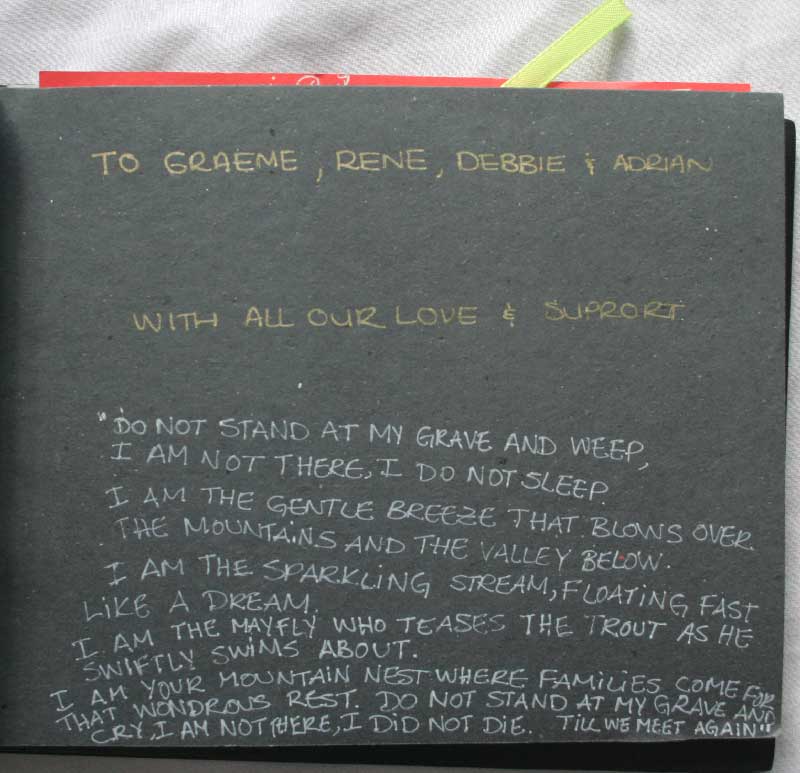 TO GRAEME, RENE, DEBBIE & ADRIAN
WITH ALL OUR LOVE & SUPPORT
"DO NOT STAND AT MY GRAVE AND WEEP,
I AM NOT THERE, I DO NOT SLEEP
I AM THE GENTLE BREEZE THAT BLOWS OVER
THE MOUNTAINS AND THE VALLEY BELOW.
I AM THE SPARKLING STREAM, FLOATING FAST
LIKE A DREAM.
I AM THE MAYFLY WHO TEASES THE TROUT AS HE
SWIFTLY SWIMS ABOUT.
I AM YOUR MOUNTAIN NEST WHERE FAMILIES COME FOR
THAT WONDROUS REST. DO NOT STAND AT MY GRAVE AND
CRY, I AM NOT THERE, I DID NOT DIE. TILL WE MEET AGAIN"